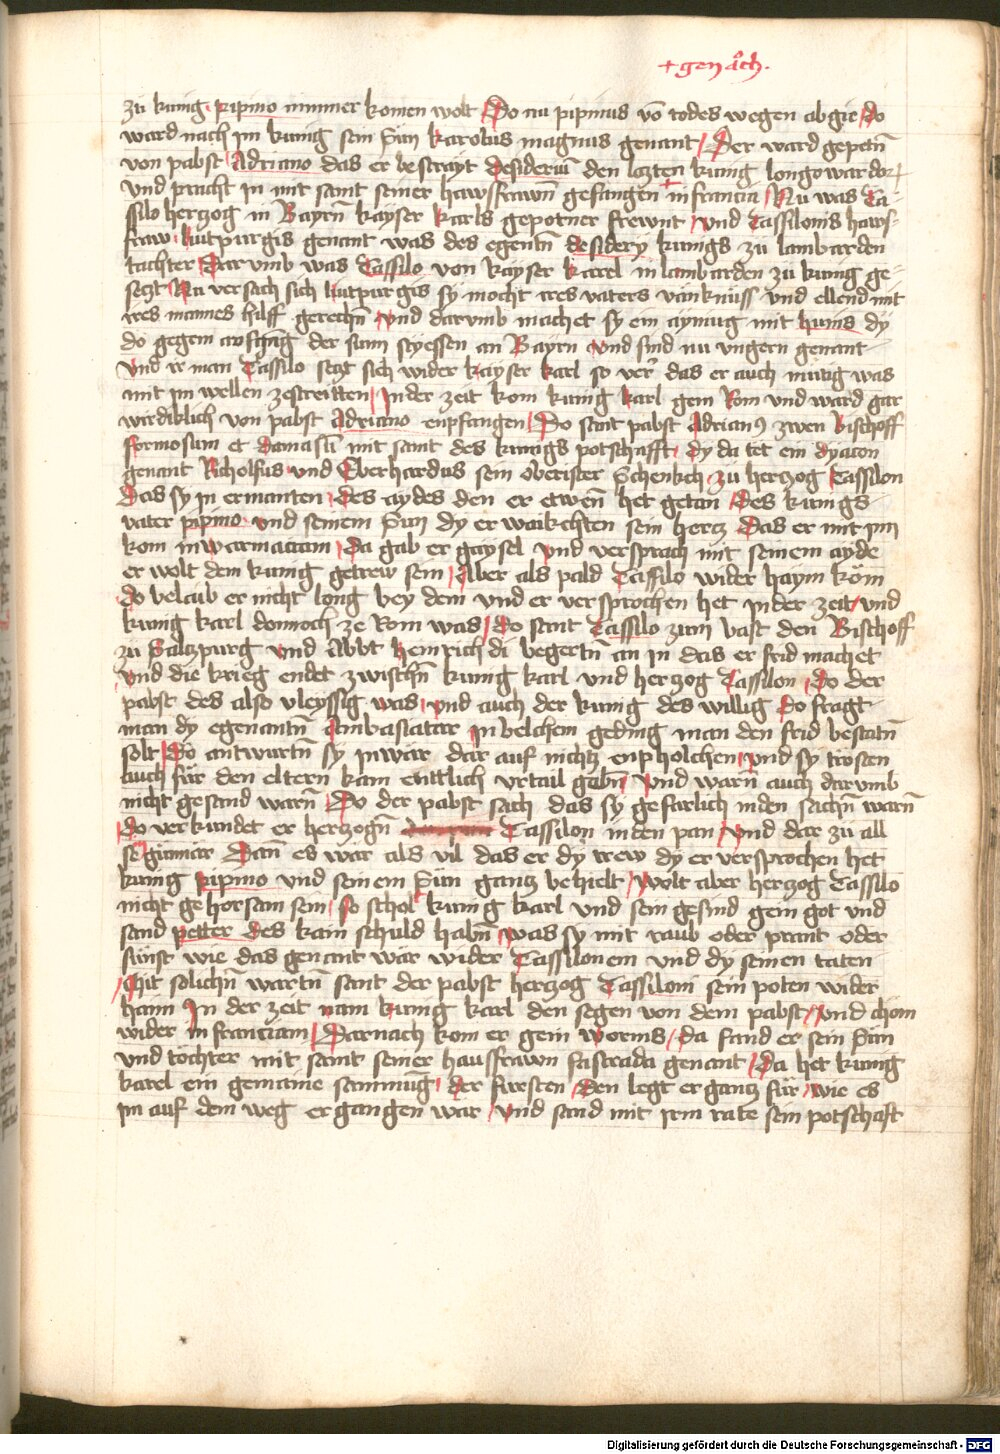 + gen ach.
zu kunig pipino nimmer komen wolt Do nu pipinus vō todes wegen abgie do
ward nach im kunig sein Sun karolus magnus genant Der ward gepetn̄
von pabst Adriano das er bestrayt desideriū den lezten kunig longowardor
vnd pracht in mit samt seiner hawsfrawn̄ gefangen + in francia Nu was Ta-
ssilo hertzog in Bayrn̄ kayser karls gepotner frewnt vnd Tassilonis haws-
fraw luitpurgis genant was des egentn̄ desidery kunigs zu lambarden
tachter Dar vmb was Tassilo von kayser karel in lambarden zu kunig ge-
setzt Nu versach sich luitpurgis sy mocht ires vaters vanknüss vnd ellend mit
ires mannes hilff gerechn̄ vnd darvmb machet sy ein aynung mit hunis dy
do gegem aufgang der sunn styessen an Bayrn vnd sind nu vngern genant
vnd ir man Tassilo setzt sich wider kayser karl so ver das er auch mutig was
mit im wellen zestreitten In der zeit kom kunig karl gein Rom vnd ward gar
wirdiklich von pabst Adriano enpfangen Do sant pabst Adrianꝰ zwen Bischoff
formosum et damasū mit samt des kunigs potschafft dy da tet ein dyacon
genant Richolfus vnd Eberhardus sein obrister Schenkch zu hertzog Tassilon
Das sy in ermanten des aydes den er etwen̄ het getan des kunigs
vater pipino vnd seinem Sun dy er waikchten sein hertz Das er mit im
kom in warmaciam Da gab er gaysel vnd versprach mit seinem ayde
er wolt dem kunig getrew sein Aber als pald Tassilo wider haym köm
do belaib er nicht long bey dem vnd er versprochen het In der zeit vnd
kunig karl dennoch ze Rom was Do sant Tassilo zum bast den Bischoff
zu Saltzpurg vnd Abbt heinrich di begertn̄ an in das er frid machet
vnd die krieg endet zwischn̄ kunig karl vnd hertzog Tassilon Do der
pabst des also vleyssig was vnd auch der kunig des willig Do fragt
man dy egenantn̄ Ambasiatar in welchem geding man den frid bestatn̄
solt Do antwurtn̄ sy in wär dar auf nichtz enpholchen vnd sy trosten
auch für den eltern kain enttlich vrtail gebn̄ vnd warn̄ auch darvmb
nicht gesand warn̄ Do der pabst sach das sy gefarlich in den sachn̄ warn̄
do verkundet er hertzogn̄ Tassilon in den pan vnd dar zu all
sein ginnar Dan̄ es wär als vil das er dy trew dy er versprochen het
kunig pipino vnd seinem Sun gantz behielt Wolt aber hertzog Tassilo
nicht gehorsam sein so schol kunig karl vnd sein gesind gein got vnd
sand petter des kain schuld habn̄ was sy mit raub oder prant oder
sünst wie das genant wär wider Tassilonem vnd dy seinen täten
Mit solichn̄ wartn̄ sant der pabst hertzog Tassiloni sein poten wider
haim In der zeit nam kunig karl den segen von dem pabst vnd chom
wider in franciam Darnach kom er gein worms da fand er sein Sun
vnd tochter mit samt seiner hausfrawn fastrada genant Da het kunig
karel ein gemaine sammung der fursten den legt er gantz für wie es
im auf dem weg ergangen war vnd sand mit irm rate sein potschaft
Digitalisierung gefördert durch die Deutsche Forschungsgemeinschaft - DFG